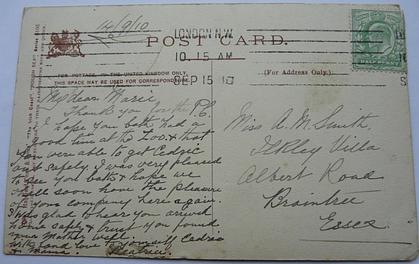 14/9/10
LONDON N.W.
10.15 AM
SEP 15 10
POST CARD.
FOR POSTAGE IN THE UNITED KINGDOM ONLY,
THIS SPACE MAY BE USED FOR CORRESPONDENCE
(For Address Only.)
HALFPENNY
My dear Marie,
Thank you for the P.C.
I hope you both had a
good time at the Zoo & that
you were able to get Cedric
home safely. I was very pleased
to see you both & hope we
shall soon have the pleasure
of your company here again.
I was glad to hear you arrived
home safely & trust you found
your Mother well.
With fond love to yourself Cedric
& Mama. Beatrice.
Miss A. M. Smith,
Ilkley Villa
Albert Road
Braintree
Essex.